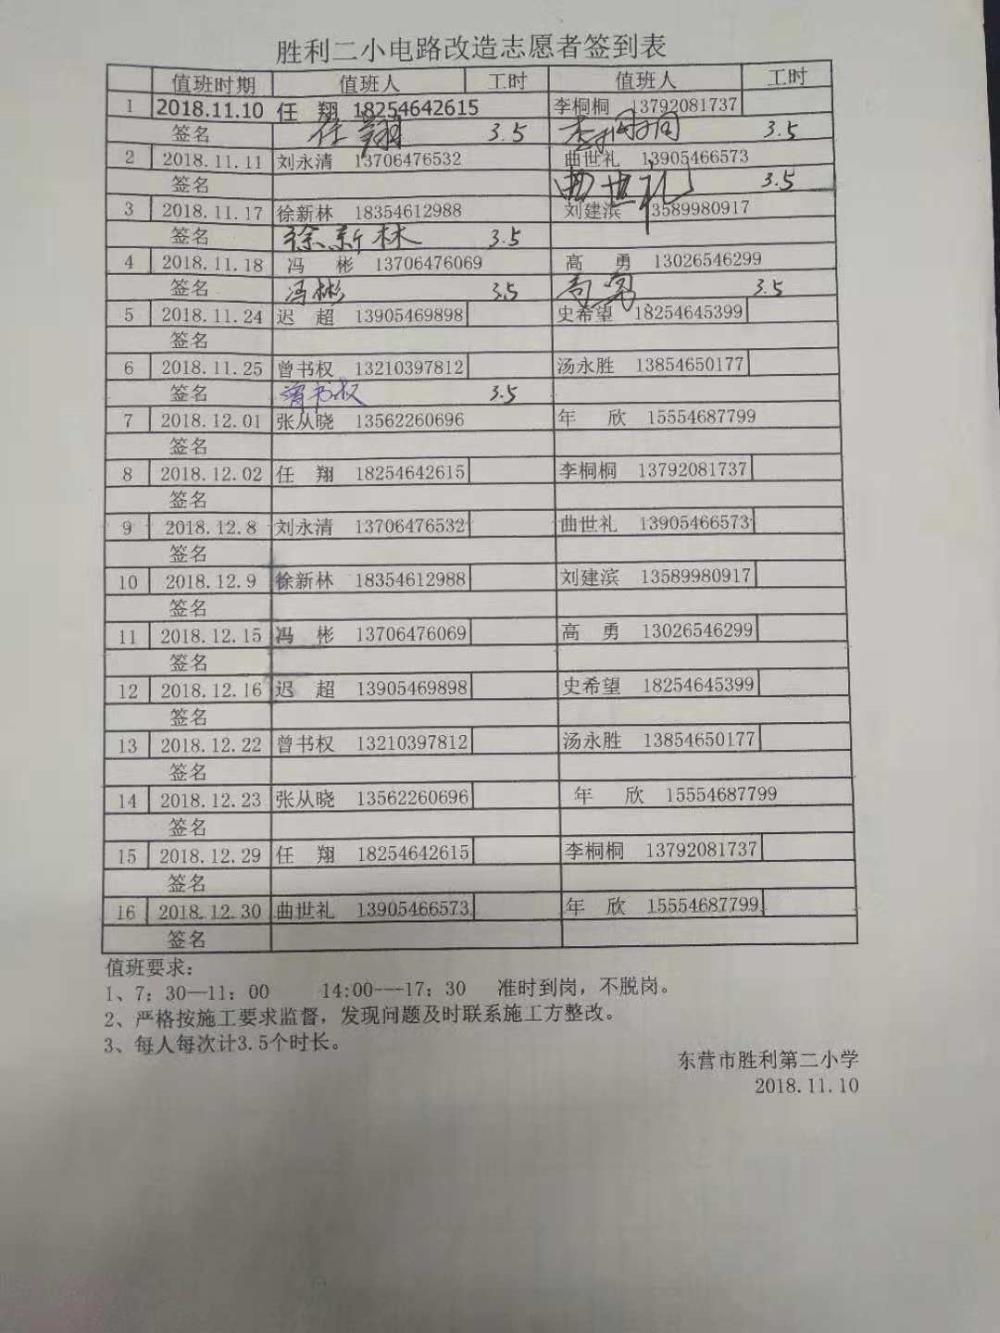 胜利二小电路改造志愿者签到表
值班时期 值班人 工时 值班人 工时
1 2018.11.10 任 翔 18254642615 李桐桐 13792081737
签名 任翔 3.5 李桐桐 3.5
2 2018.11.11 刘永清 13706476532 曲世礼 13905466573
签名 曲世礼 3.5
3 2018.11.17 徐新林 18354612988 刘建滨 13589980917
签名 徐新林 3.5
4 2018.11.18 冯 彬 13706476069 高 勇 13026546299
签名 冯彬 3.5 高勇 3.5
5 2018.11.24 迟 超 13905469898 史希望 18254645399
签名
6 2018.11.25 曾书权 13210397812 汤永胜 13854650177
签名 曾书权 3.5
7 2018.12.01 张从晓 13562260696 年 欣 15554687799
签名
8 2018.12.02 任 翔 18254642615 李桐桐 13792081737
签名
9 2018.12.8 刘永清 13706476532 曲世礼 13905466573
签名
10 2018.12.9 徐新林 18354612988 刘建滨 13589980917
签名
11 2018.12.15 冯 彬 13706476069 高 勇 13026546299
签名
12 2018.12.16 迟 超 13905469898 史希望 18254645399
签名
13 2018.12.22 曾书权 13210397812 汤永胜 13854650177
签名
14 2018.12.23 张从晓 13562260696 年 欣 15554687799
签名
15 2018.12.29 任 翔 18254642615 李桐桐 13792081737
签名
16 2018.12.30 曲世礼 13905466573 年 欣 15554687799
签名
值班要求：
1、7：30—11：00 14:00---17：30 准时到岗，不脱岗。
2、严格按施工要求监督，发现问题及时联系施工方整改。
3、每人每次计3.5个时长。
东营市胜利第二小学
2018.11.10